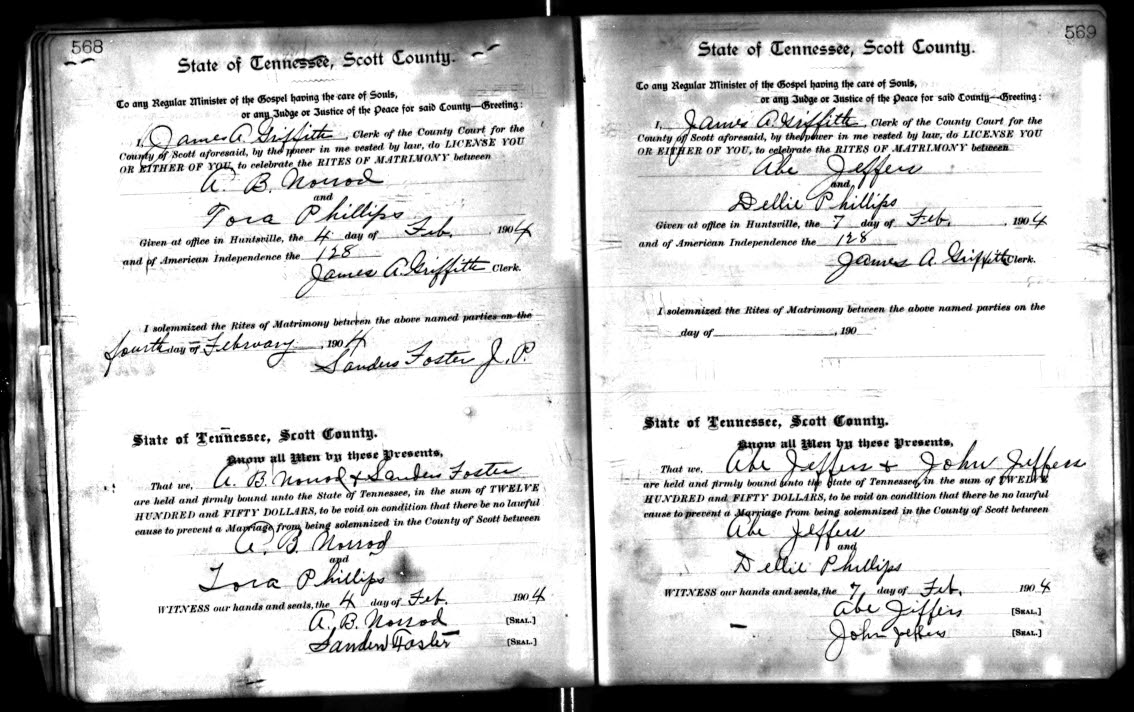 568
State of Tennessee, Scott County.
To any Regular Minister of the Gospel having the care of Souls,
or any Judge or Justice of the Peace for said County—Greeting:
I, James A. Griffith, Clerk of the County Court for the
County of Scott aforesaid, by the power in me vested by law, do LICENSE YOU
OR EITHER OF YOU, to celebrate the RITES OF MATRIMONY between
A. B. Norrod
and
Tora Phillips
Given at office in Huntsville, the 4 day of Feb. 1904
and of American Independence the 128
James A. Griffith Clerk.
I solemnized the Rites of Matrimony between the above named parties on the
fourth day of February, 1904
Sanders Foster J. P.
State of Tennessee, Scott County.
Know all Men by these Presents,
That we, A. B. Norrod & Sanders Foster
are held and firmly bound unto the State of Tennessee, in the sum of TWELVE
HUNDRED and FIFTY DOLLARS, to be void on condition that there be no lawful
cause to prevent a Marriage from being solemnized in the County of Scott between
A. B. Norrod
and
Tora Phillips
WITNESS our hands and seals, the 4 day of Feb. 1904
A. B. Norrod [SEAL.]
Sanders Foster [SEAL.]
569
State of Tennessee, Scott County.
To any Regular Minister of the Gospel having the care of Souls,
or any Judge or Justice of the Peace for said County—Greeting:
I, James A. Griffith, Clerk of the County Court for the
County of Scott aforesaid, by the power in me vested by law, do LICENSE YOU
OR EITHER OF YOU, to celebrate the RITES OF MATRIMONY between
Abe Jeffers
and
Dellie Phillips
Given at office in Huntsville, the 7 day of Feb. , 1904
and of American Independence the 128
James A. Griffith Clerk.
I solemnized the Rites of Matrimony between the above named parties on the
day of , 190
State of Tennessee, Scott County.
Know all Men by these Presents,
That we, Abe Jeffers & John Jeffers
are held and firmly bound unto the State of Tennessee, in the sum of TWELVE
HUNDRED and FIFTY DOLLARS, to be void on condition that there be no lawful
cause to prevent a Marriage from being solemnized in the County of Scott between
Abe Jeffers
and
Dellie Phillips
WITNESS our hands and seals, the 7 day of Feb. 1904
Abe Jeffers [SEAL.]
John Jeffers [SEAL.]